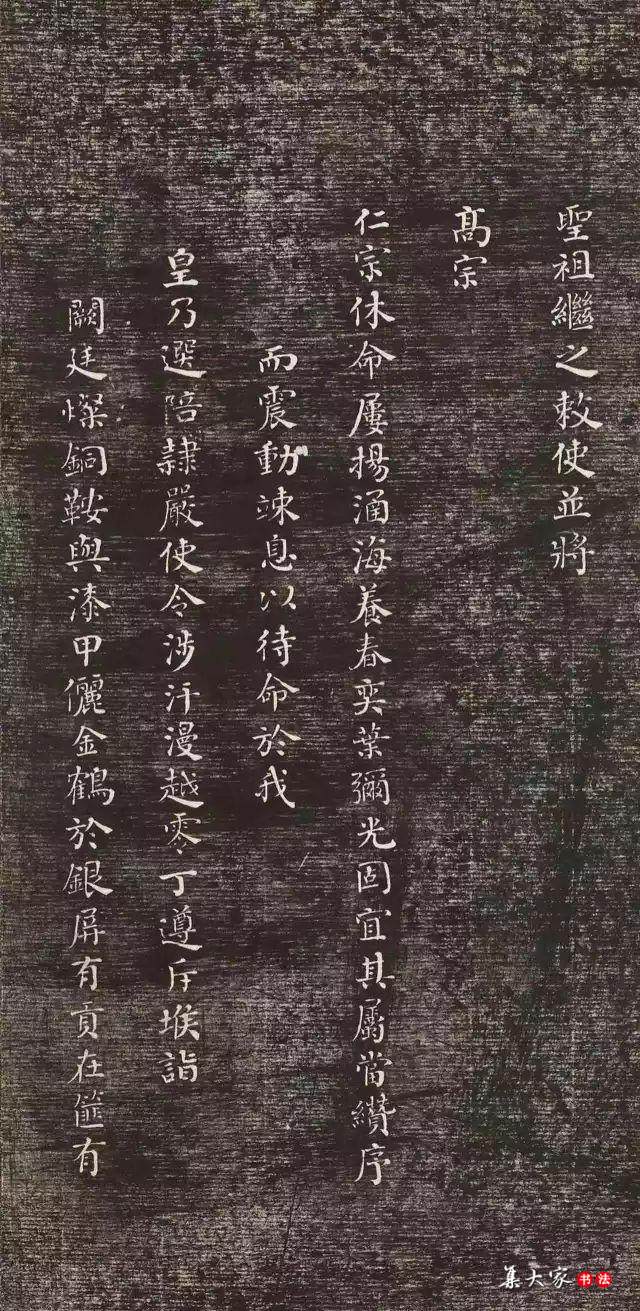 聖祖繼之敕使並將
高宗
仁宗休命屢揚涵海養春奕葉彌光固宜其屬當纘序
而震動竦息以待命於我
皇乃選陪隸嚴使令涉汗漫越零丁遵斥堠詣
闕廷燦銅鞍與漆甲儷金鶴於銀屏有貢在篚有
集大家书法